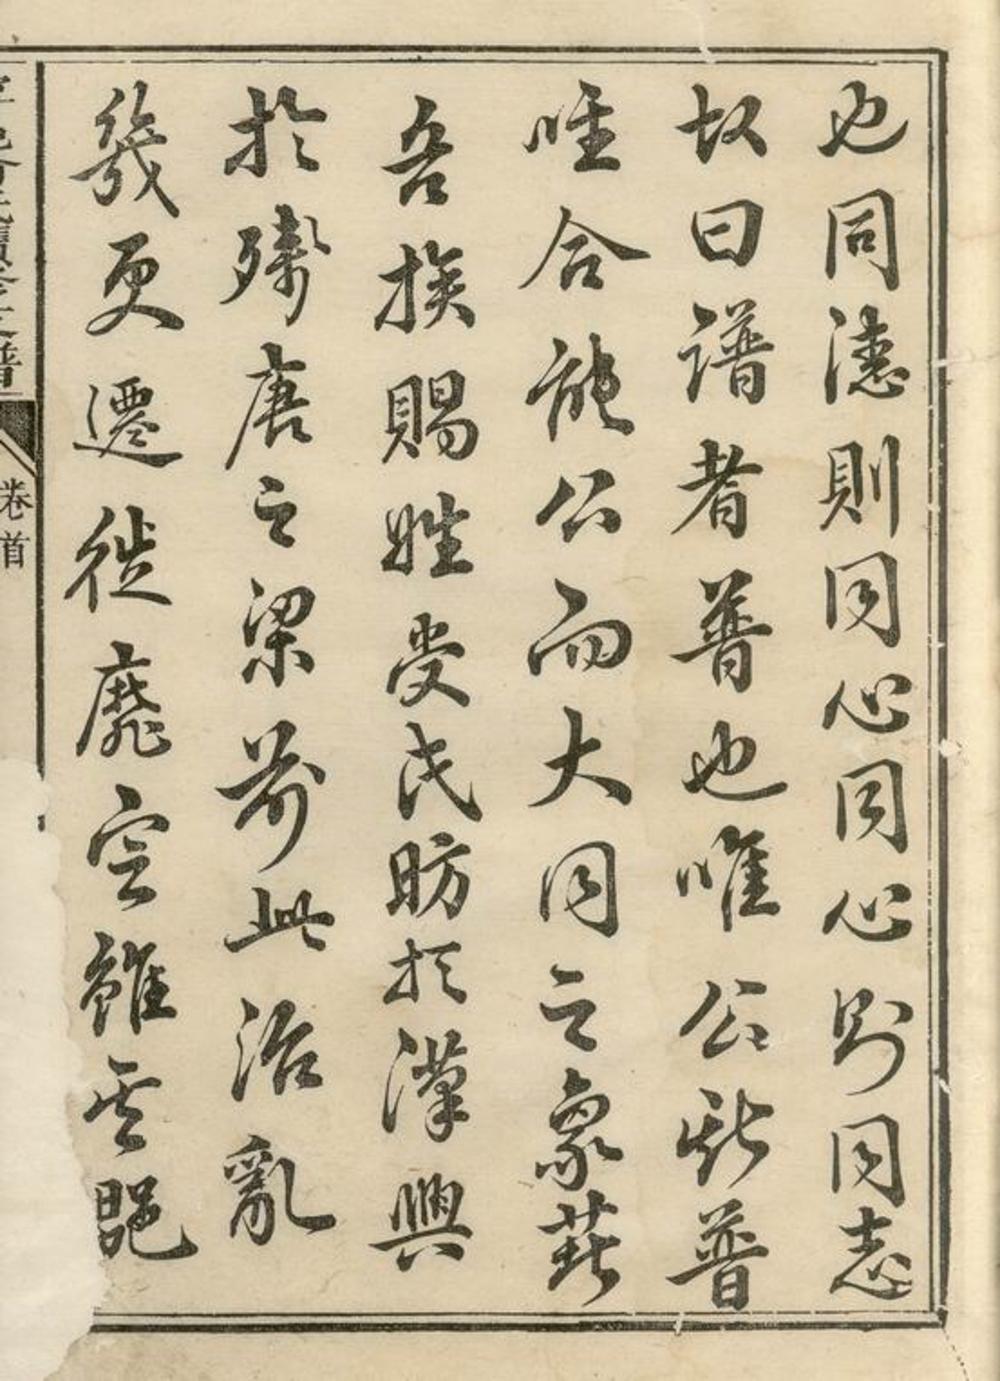 也同德則同心同心則同志
故曰譜者普也唯公斯普
唯合能公而大同之象
吾族賜姓受氏昉於漢興
於殘唐之梁前此治亂
幾更遷徙靡定雖云
譜 卷首